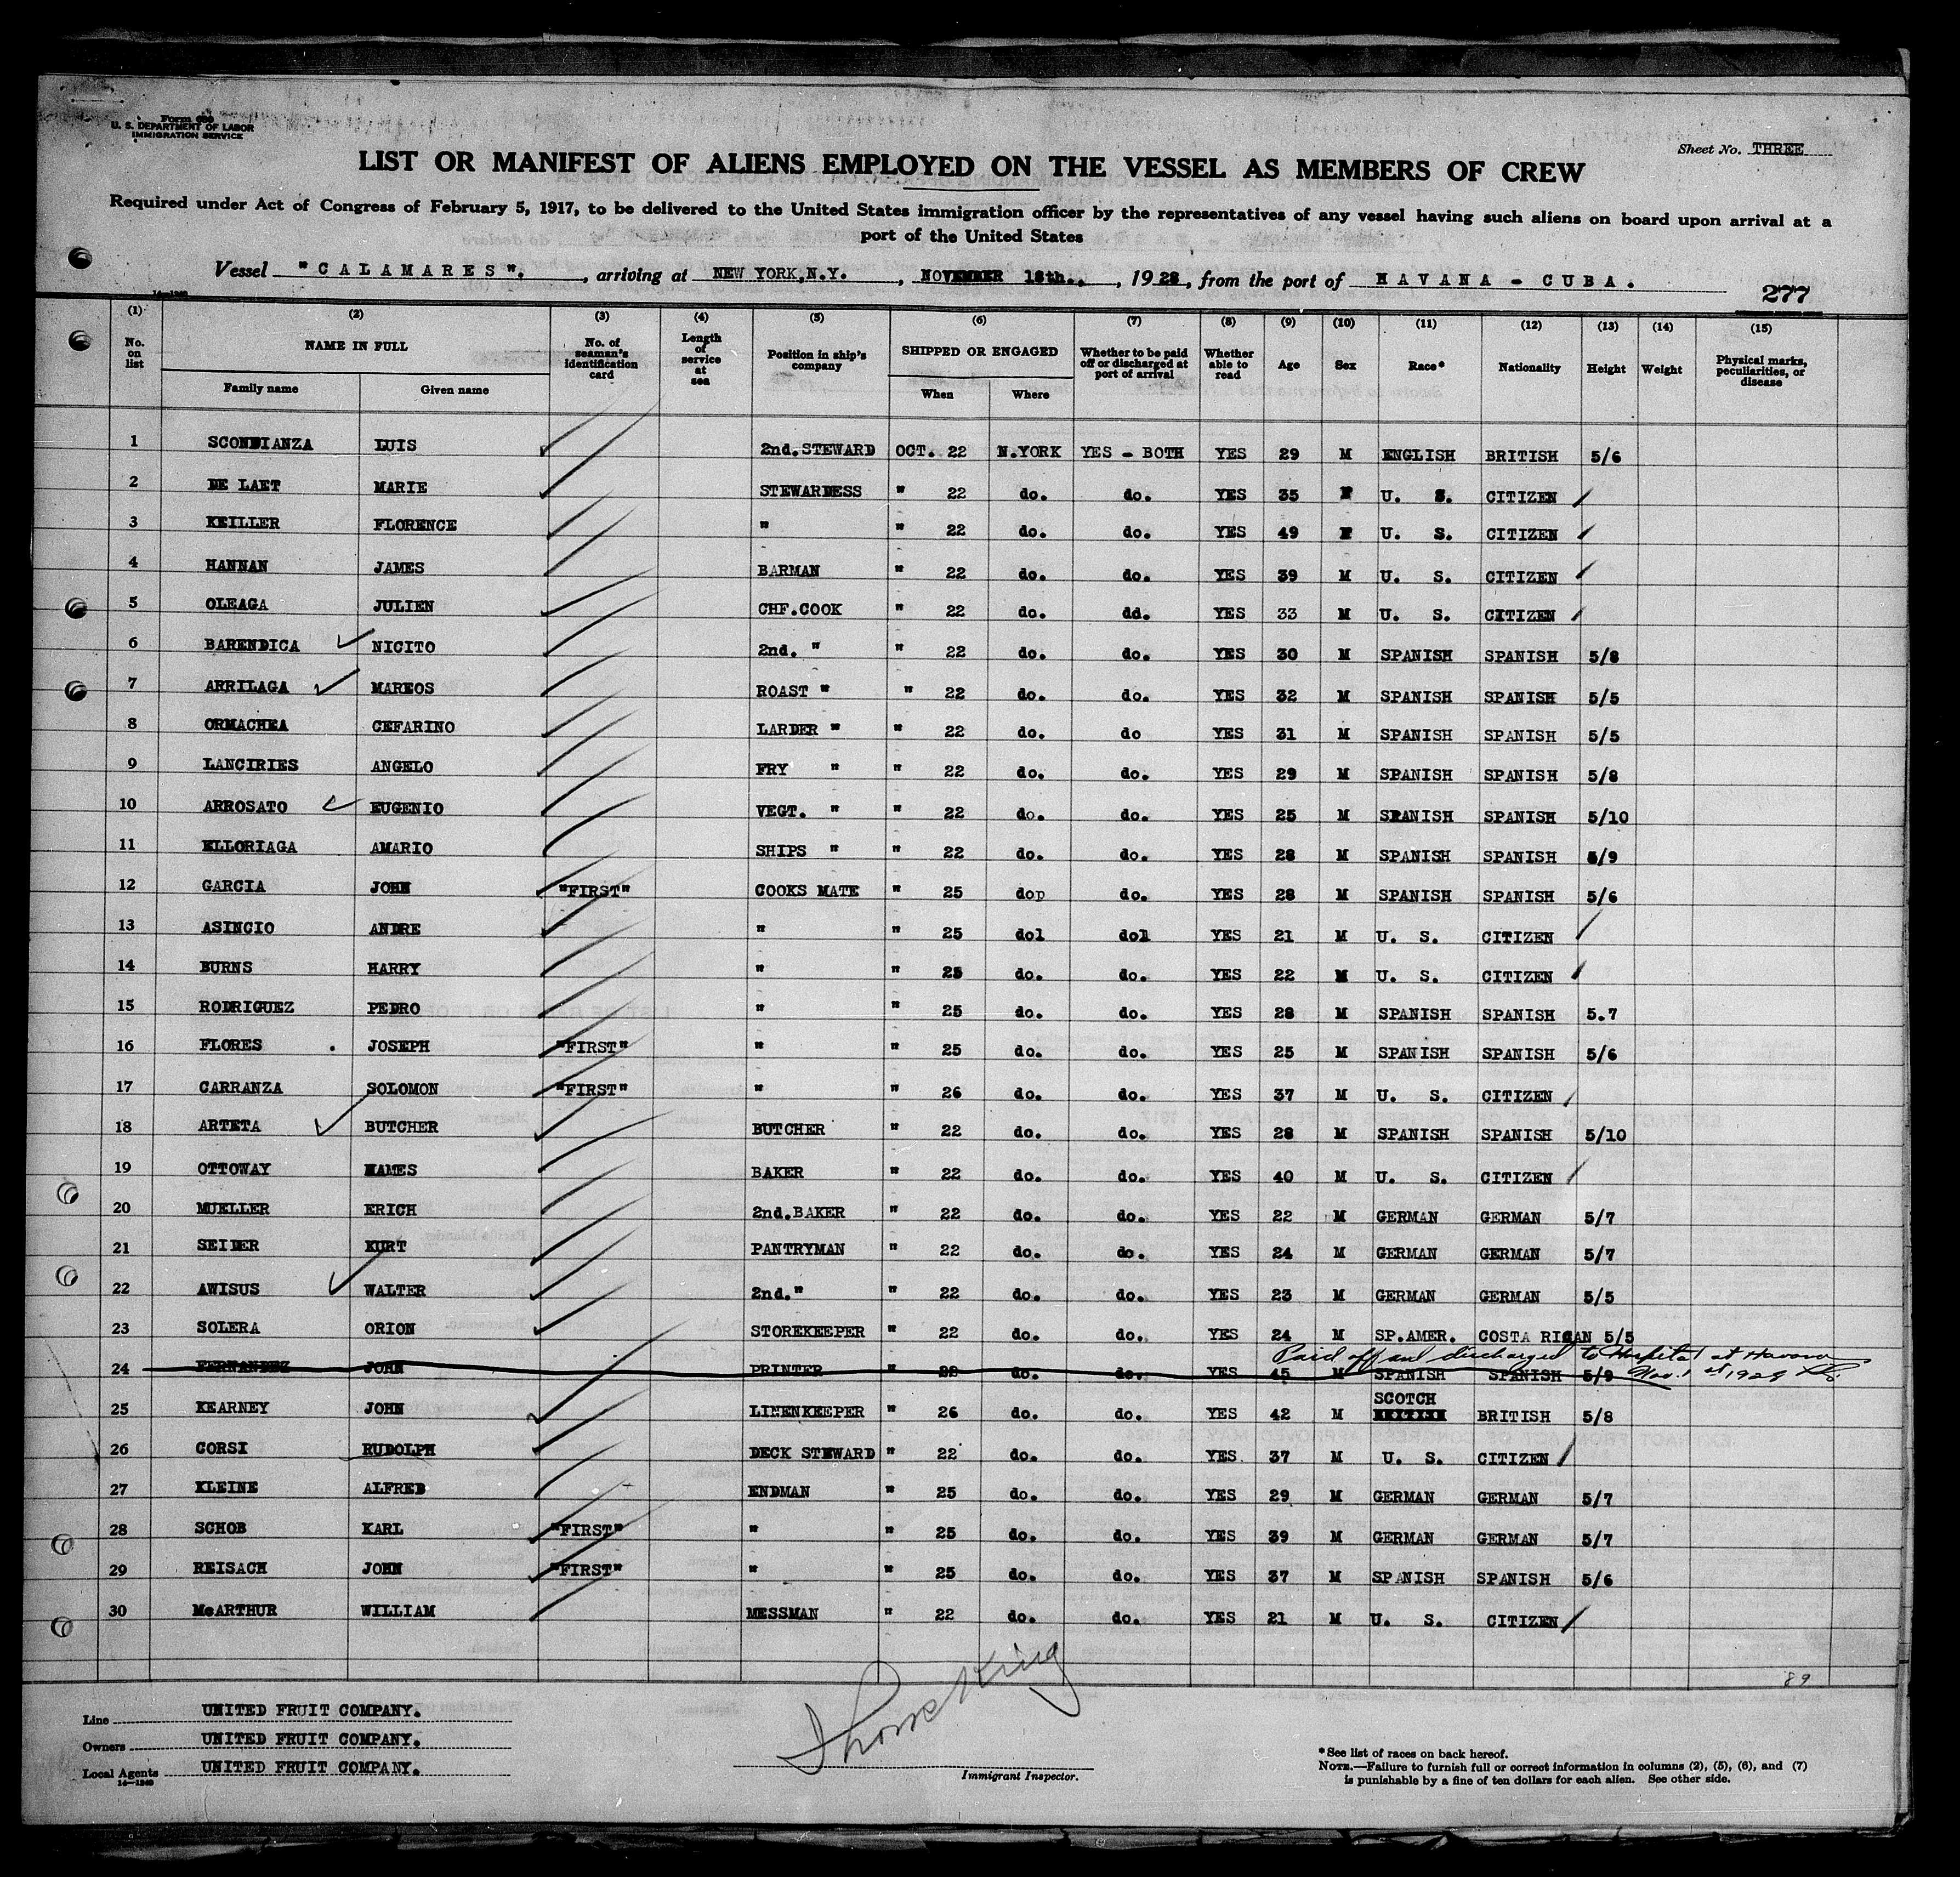 Form 680
U. S. DEPARTMENT OF LABOR
IMMIGRATION SERVICE
Sheet No. THREE
LIST OR MANIFEST OF ALIENS EMPLOYED ON THE VESSEL AS MEMBERS OF CREW
Required under Act of Congress of February 5, 1917, to be delivered to the United States immigration officer by the representatives of any vessel having such aliens on board upon arrival at a
port of the United States
Vessel "CALAMARES". , arriving at NEW YORK,N.Y. , NOVEMBER 18th., , 1928, from the port of HAVANA - CUBA.
14—1240
277
(1) (2) (3) (4) (5) (6) (7) (8) (9) (10) (11) (12) (13) (14) (15)
No. on list NAME IN FULL Family name Given name No. of seaman's identification card Length of service at sea Position in ship's company SHIPPED OR ENGAGED When Where Whether to be paid off or discharged at port of arrival Whether able to read Age Sex Race* Nationality Height Weight Physical marks, peculiarities, or disease
1 SCONDIANZA LUIS 2nd.STEWARD OCT. 22 N.YORK YES - BOTH YES 29 M ENGLISH BRITISH 5/6
2 DE LAET MARIE STEWARDESS " 22 do. do. YES 35 F U. S. CITIZEN
3 KEILLER FLORENCE " " 22 do. do. YES 49 F U. S. CITIZEN
4 HANNAN JAMES BARMAN " 22 do. do. YES 39 M U. S. CITIZEN
5 OLEAGA JULIEN CHF.COOK " 22 do. dd. YES 33 M U. S. CITIZEN
6 BARENDICA NICITO 2nd. " " 22 do. do. YES 30 M SPANISH SPANISH 5/8
7 ARRILAGA MAREOS ROAST " " 22 do. do. YES 32 M SPANISH SPANISH 5/5
8 ORMACHEA CEFARINO LARDER " " 22 do. do YES 31 M SPANISH SPANISH 5/5
9 LANCIRIES ANGELO FRY " " 22 do. do. YES 29 M SPANISH SPANISH 5/8
10 ARROSATO EUGENIO VEGT. " " 22 do. do. YES 25 M SPANISH SPANISH 5/10
11 ELLORIAGA AMARIO SHIPS " " 22 do. do. YES 28 M SPANISH SPANISH 5/9
12 GARCIA JOHN "FIRST" COOKS MATE " 25 dop do. YES 28 M SPANISH SPANISH 5/6
13 ASINCIO ANDRE " " 25 dol dol YES 21 M U. S. CITIZEN
14 BURNS HARRY " " 25 do. do. YES 22 M U. S. CITIZEN
15 RODRIGUEZ PEDRO " " 25 do. do. YES 28 M SPANISH SPANISH 5.7
16 FLORES . JOSEPH "FIRST" " " 25 do. do. YES 25 M SPANISH SPANISH 5/6
17 CARRANZA SOLOMON "FIRST" " " 26 do. do. YES 37 M U. S. CITIZEN
18 ARTETA BUTCHER BUTCHER " 22 do. do. YES 28 M SPANISH SPANISH 5/10
19 OTTOWAY HAMES BAKER " 22 do. do. YES 40 M U. S. CITIZEN
20 MUELLER ERICH 2nd.BAKER " 22 do. do. YES 22 M GERMAN GERMAN 5/7
21 SEIDER KURT PANTRYMAN " 22 do. do. YES 24 M GERMAN GERMAN 5/7
22 AWISUS WALTER 2nd." " 22 do. do. YES 23 M GERMAN GERMAN 5/5
23 SOLERA ORION STOREKEEPER " 22 do. do. YES 24 M SP.AMER. COSTA RICAN 5/5
Paid off and discharged to Hospital at Havana
24 FERNANDEZ JOHN PRINTER " 22 do. do. YES 45 M SPANISH SPANISH 5/9 Nov. 1928
SCOTCH
25 KEARNEY JOHN LINENKEEPER " 26 do. do. YES 42 M BRITISH BRITISH 5/8
26 CORSI RUDOLPH DECK STEWARD " 22 do. do. YES 37 M U. S. CITIZEN
27 KLEINE ALFRED ENDMAN " 25 do. do. YES 29 M GERMAN GERMAN 5/7
28 SCHOB KARL "FIRST" " " 25 do. do. YES 39 M GERMAN GERMAN 5/7
29 REISACH JOHN "FIRST" " " 25 do. do. YES 37 M SPANISH SPANISH 5/6
30 McARTHUR WILLIAM MESSMAN " 22 do. do. YES 21 M U. S. CITIZEN
89
Line UNITED FRUIT COMPANY.
Owners UNITED FRUIT COMPANY.
Local Agents UNITED FRUIT COMPANY.
14—1240
Immigrant Inspector.
*See list of races on back hereof.
NOTE.—Failure to furnish full or correct information in columns (2), (5), (6), and (7)
is punishable by a fine of ten dollars for each alien. See other side.